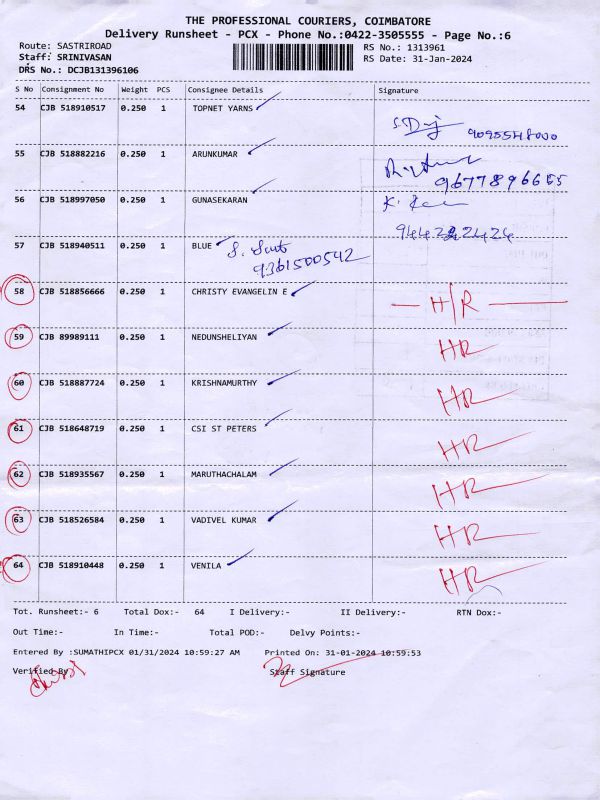 THE PROFESSIONAL COURIERS, COIMBATORE
Delivery Runsheet - PCX - Phone No.:0422-3505555 - Page No.:6
Route: SASTRIROAD
RS No.: 1313961
Staff: SRINIVASAN
RS Date: 31-Jan-2024
DRS No.: DCJB131396106
S No Consignment No Weight PCS Consignee Details Signature
54 CJB 518910517 0.250 1 TOPNET YARNS
55 CJB 518882216 0.250 1 ARUNKUMAR
9677896655
56 CJB 518997050 0.250 1 GUNASEKARAN
57 CJB 518940511 0.250 1 BLUE
9361500542
58 CJB 518856666 0.250 1 CHRISTY EVANGELIN E H/R
59 CJB 89989111 0.250 1 NEDUNSHELIYAN HR
60 CJB 518887724 0.250 1 KRISHNAMURTHY HR
61 CJB 518648719 0.250 1 CSI ST PETERS HR
62 CJB 518935567 0.250 1 MARUTHACHALAM HR
63 CJB 518526584 0.250 1 VADIVEL KUMAR HR
64 CJB 518910448 0.250 1 VENILA HR
Tot. Runsheet:- 6 Total Dox:- 64 I Delivery:- II Delivery:- RTN Dox:-
Out Time:- In Time:- Total POD:- Delvy Points:-
Entered By :SUMATHIPCX 01/31/2024 10:59:27 AM Printed On: 31-01-2024 10:59:53
Verified By Staff Signature